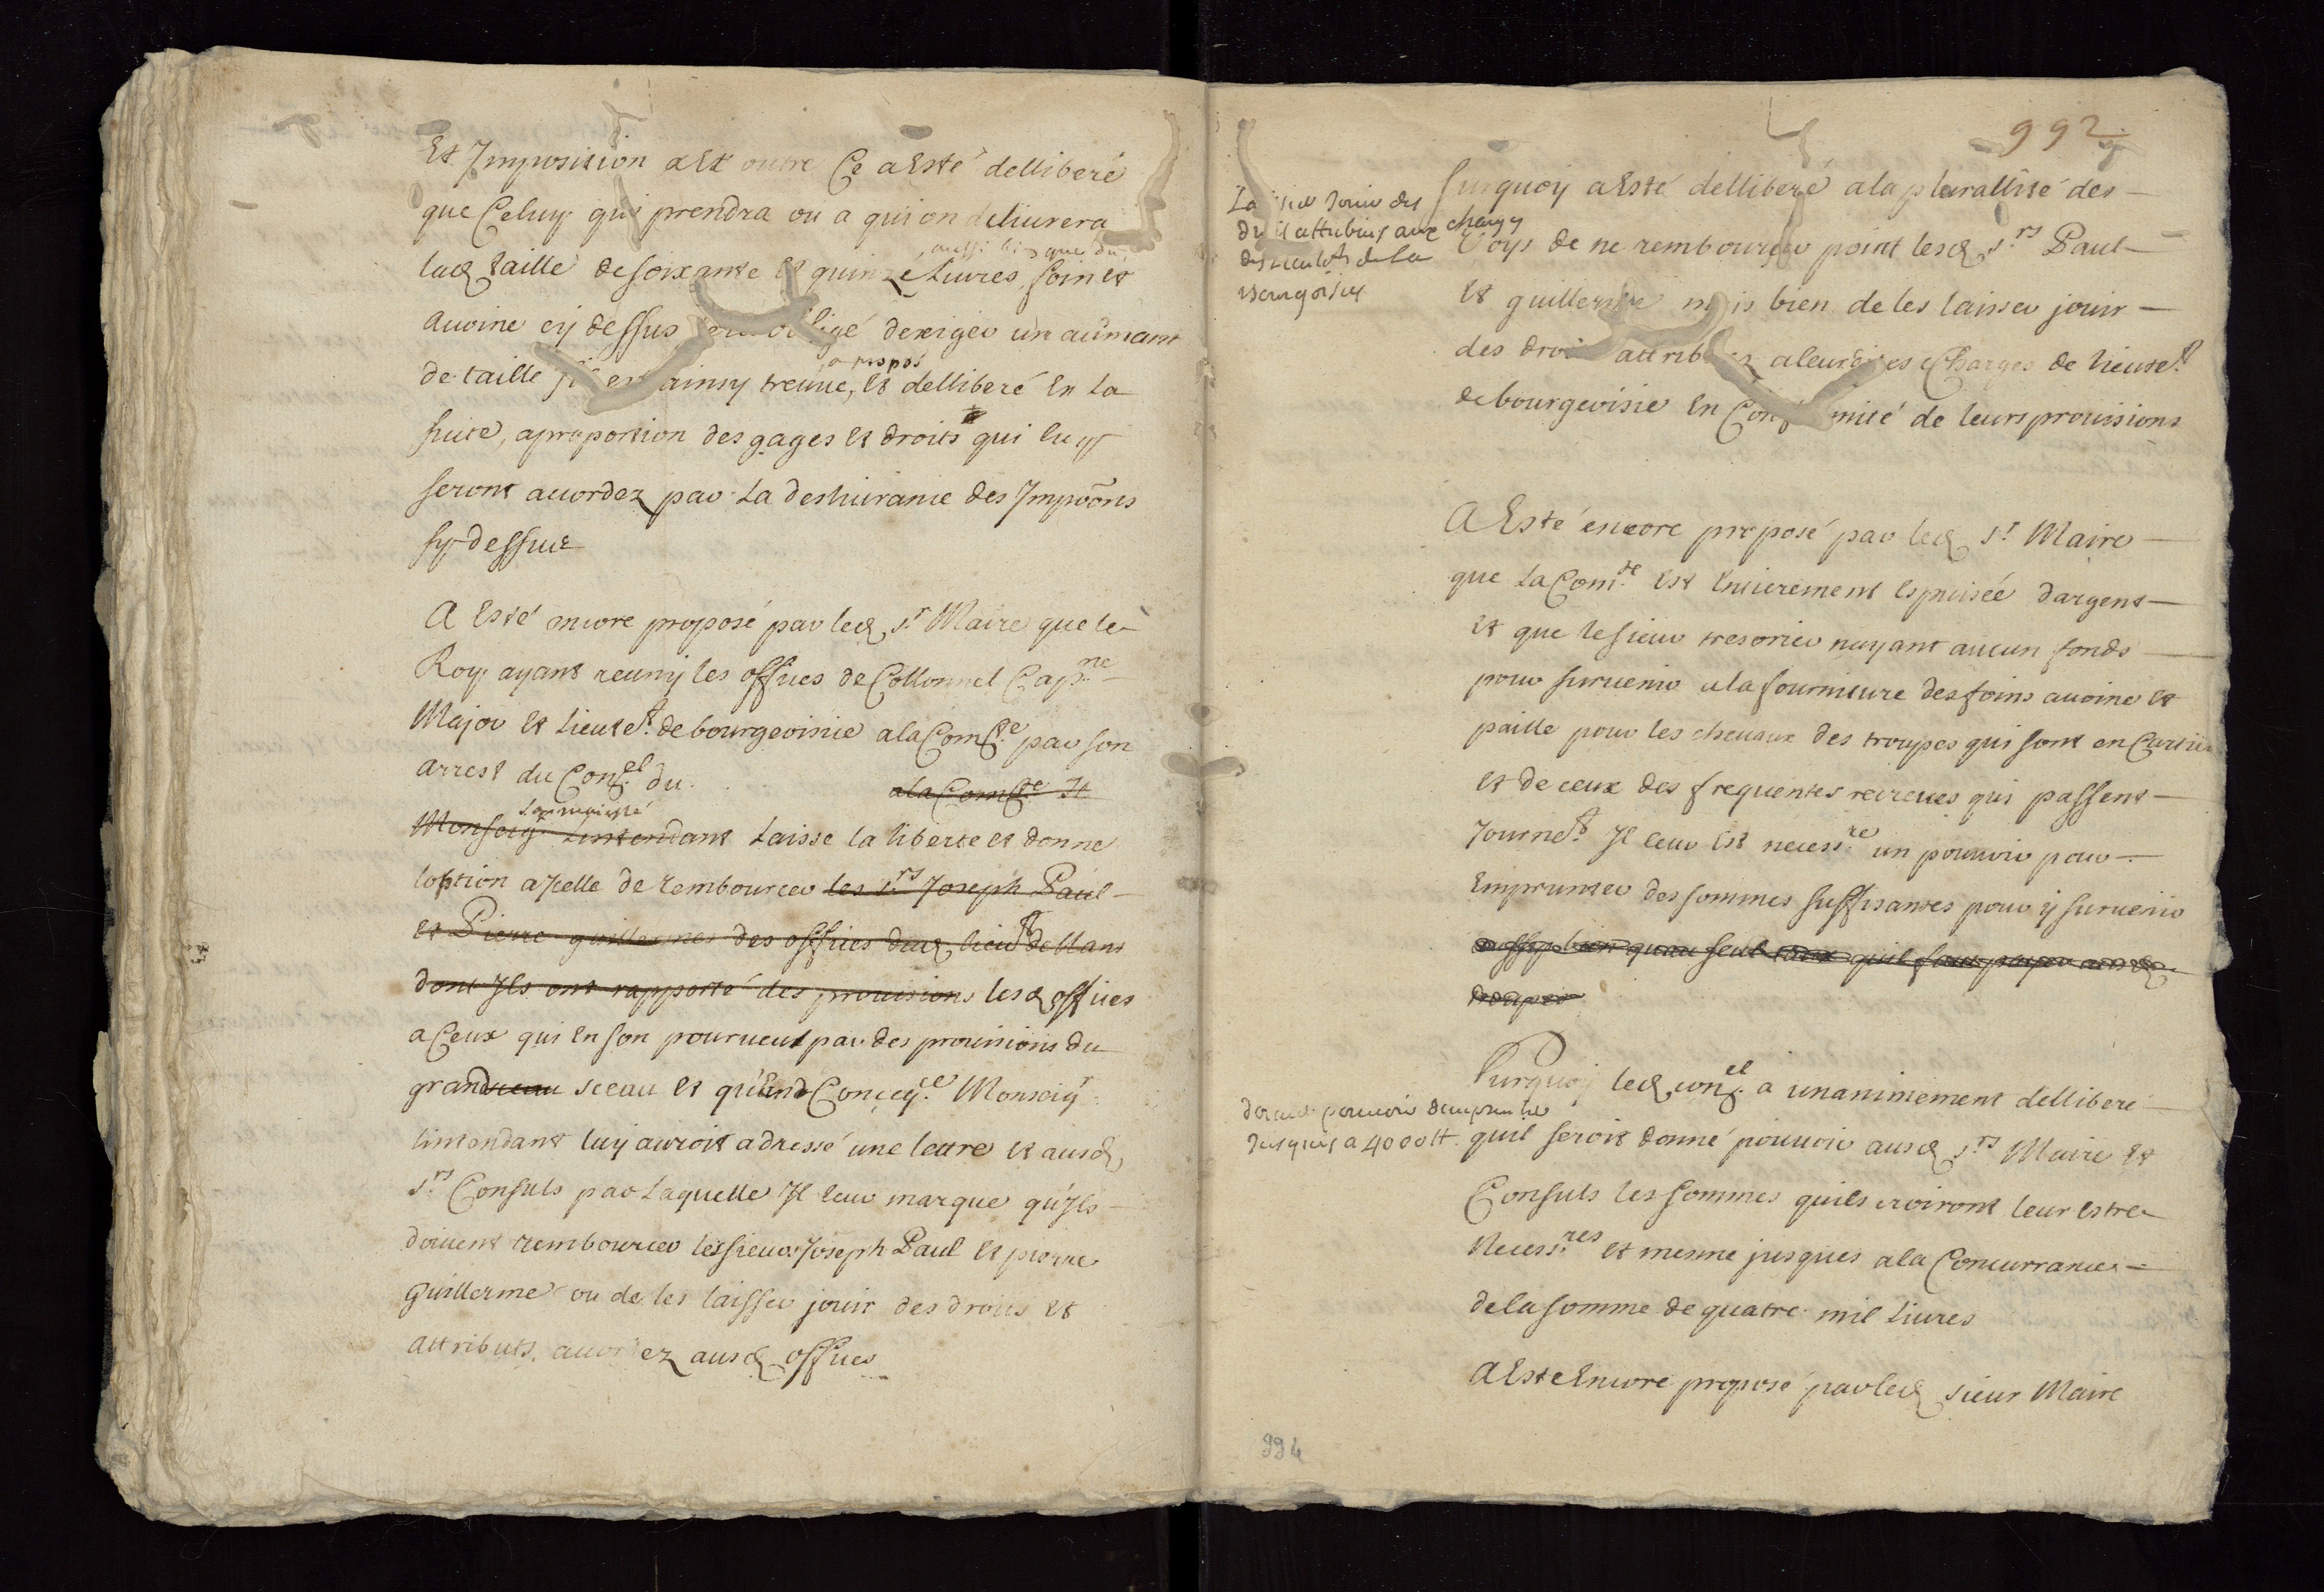 Et Jmposition aEt outre Ce aEsté delliberé
que Celuy qui prendra ou a qui on deliurera
aussi bien que du
lad taille de soixante Et quinze Liures, foin et
auoine cy dessus obligé dexiger un aumant
a propos
de taille sil est ainsy treuué, Et delliberé En La
suite, aproportion des gages Et droits qui luy
seront acordez par La desliurance des Jmpoõns
sy dessus
A Esté encore proposé par led sr Maire que le
Roy ayant reuny les offices de Collonnel Capne
Major Et Lieutet de bourgeoisie ala Comté par son
arrest du Conel du ala Comté Et
Sa majesté
Monseigr Lintendant Laisse la liberte et donne
loption aJcelle de Rembourcer les srs Joseph Paul
et Pierre guillermes des offices dud lieut dellans
dont Jls ont rapporté des prouisions lesd offices
a Ceux qui En son pourueus par des prouisions du
grand sceau sceau Et qu'End Conceqce Monseigr
lintendant luy auroit adressé une lettre Et ausd
srs Consuls par Laquelle Jl leur marque qu'Jls
doiuent rembourcer les sieurs Joseph Paul Et pierre
Guillerme ou de les laisser jouir des droits Et
attributs acordez ausd offices
992
Surquoy aEsté delliberé ala plurallité des
Laisser Jouir des
droits attribues aux charges
des lieutts de la
Bourgoisie
Voys de ne rembourcer point lesd srs Paul
Et guillerme mais bien de les laisser jouir
des droits attribuez aleurdites Charges de lieutet
de bourgeoisie En Conformité de leurs prouisions
A Esté encore proposé par led sr Maire
que La Comté Est Entierement Espuisée dargent
Et que le sieur tresorier nayant aucun fonds
pour suruenir ala fourniture des foins auoine Et
paille pour les cheuaux des troupes qui sont en Cartier
Et de ceux des frequentes recreues qui passent
Journet Jl leur Est necessre un pouuoir pour
Emprunter des sommes suffisantes pour y suruenir
aussy bien quau seul quil faut payer
troupes
Surquoy led conel a unanimement delliberé
donné pouuoir demprunter
Jusques a 4000 tt
quil seroit donné pouuoir ausd srs Maire Et
Consuls les sommes quils croiront leur Estre
Necessres Et mesme jusques ala Concurrance
de la somme de quatre mil Liures
AEste Encore proposé par led sieur Maire
994